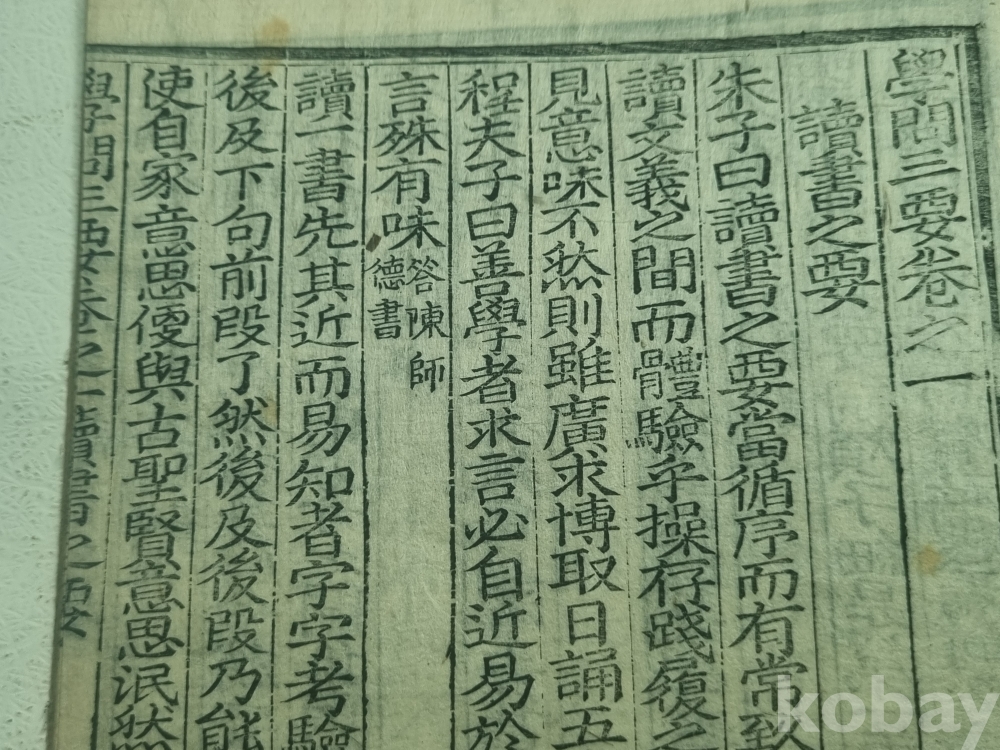 學問三要卷之一
讀書之要
朱子曰讀書之要當循序而有常致
讀文義之間而體驗乎操存踐履之
見意味不然則雖廣求博取日誦五
程夫子曰善學者求言必自近易於
言殊有味答陳師德書
讀一書先其近而易知者字字考驗
後及下句前段了然後及後段乃能
使自家意思便與古聖賢意思泯然
學問三要卷之一讀書之要
kobay